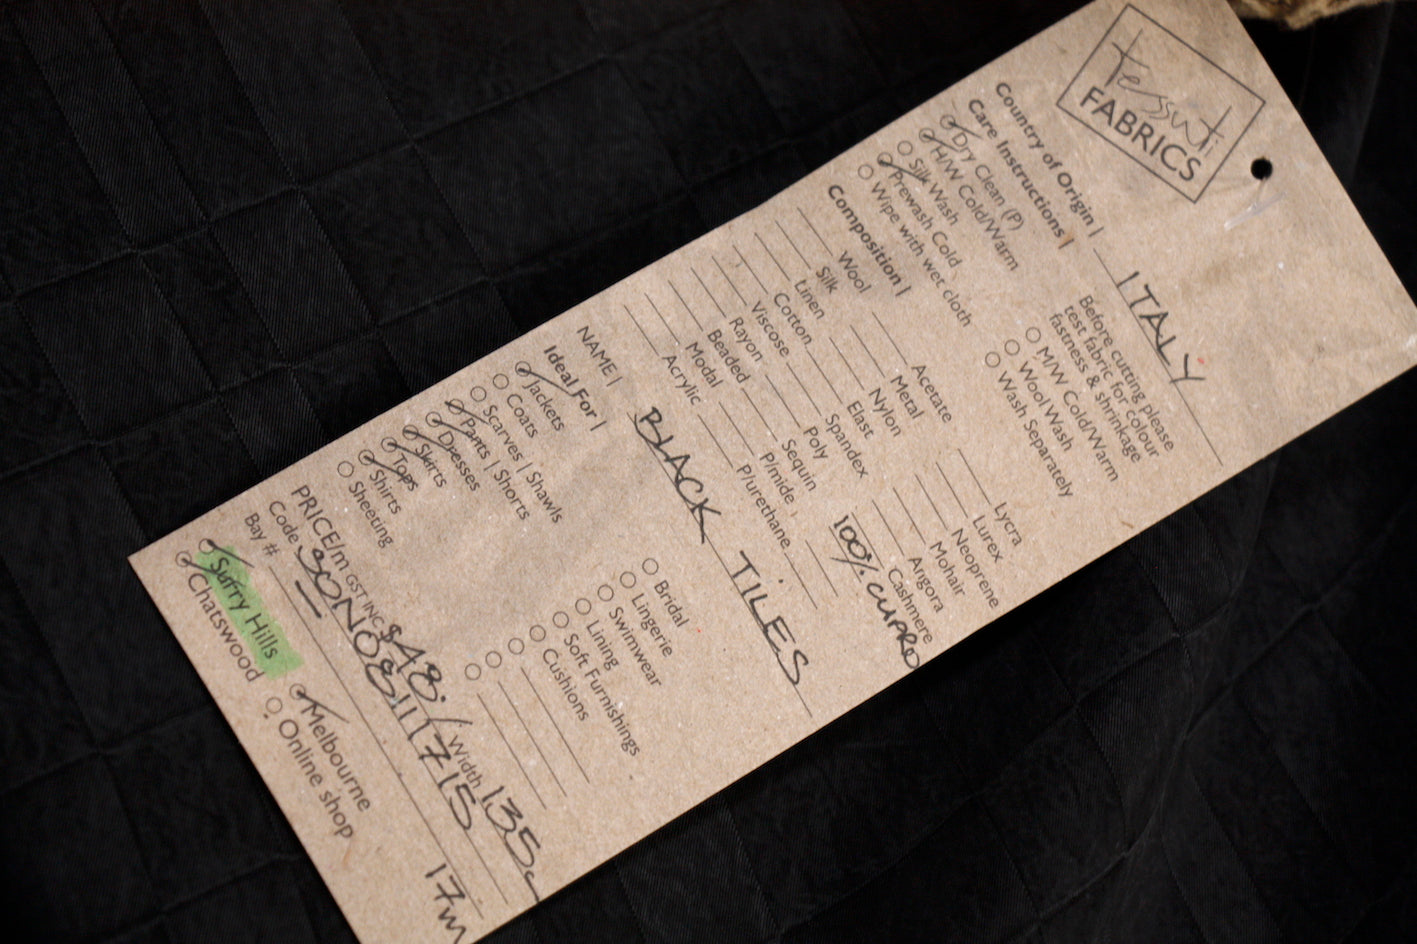 tessuti
FABRICS
Country of Origin | ITALY
Care Instructions |
Dry Clean (P)
H/W Cold/Warm
Silk Wash
Prewash Cold
Wipe with wet cloth
Before cutting please
test fabric for colour
fastness & shrinkage
M/W Cold/Warm
Wool Wash
Wash Separately
Composition |
Wool
Silk
Linen
Cotton
Viscose
Rayon
Beaded
Modal
Acrylic
Acetate
Metal
Nylon
Elast
Spandex
Poly
Sequin
P/mide
P/urethane
Lycra
Lurex
Neoprene
Mohair
Angora
Cashmere
100% CUPRO
NAME | BLACK TILES
Ideal For |
Jackets
Coats
Scarves | Shawls
Pants | Shorts
Dresses
Skirts
Tops
Shirts
Sheeting
Bridal
Lingerie
Swimwear
Lining
Soft Furnishings
Cushions
PRICE/m GST INC $48. / Width 135c
Code SON08111715
Bay # 17m
Surry Hills
Chatswood
Melbourne
Online shop